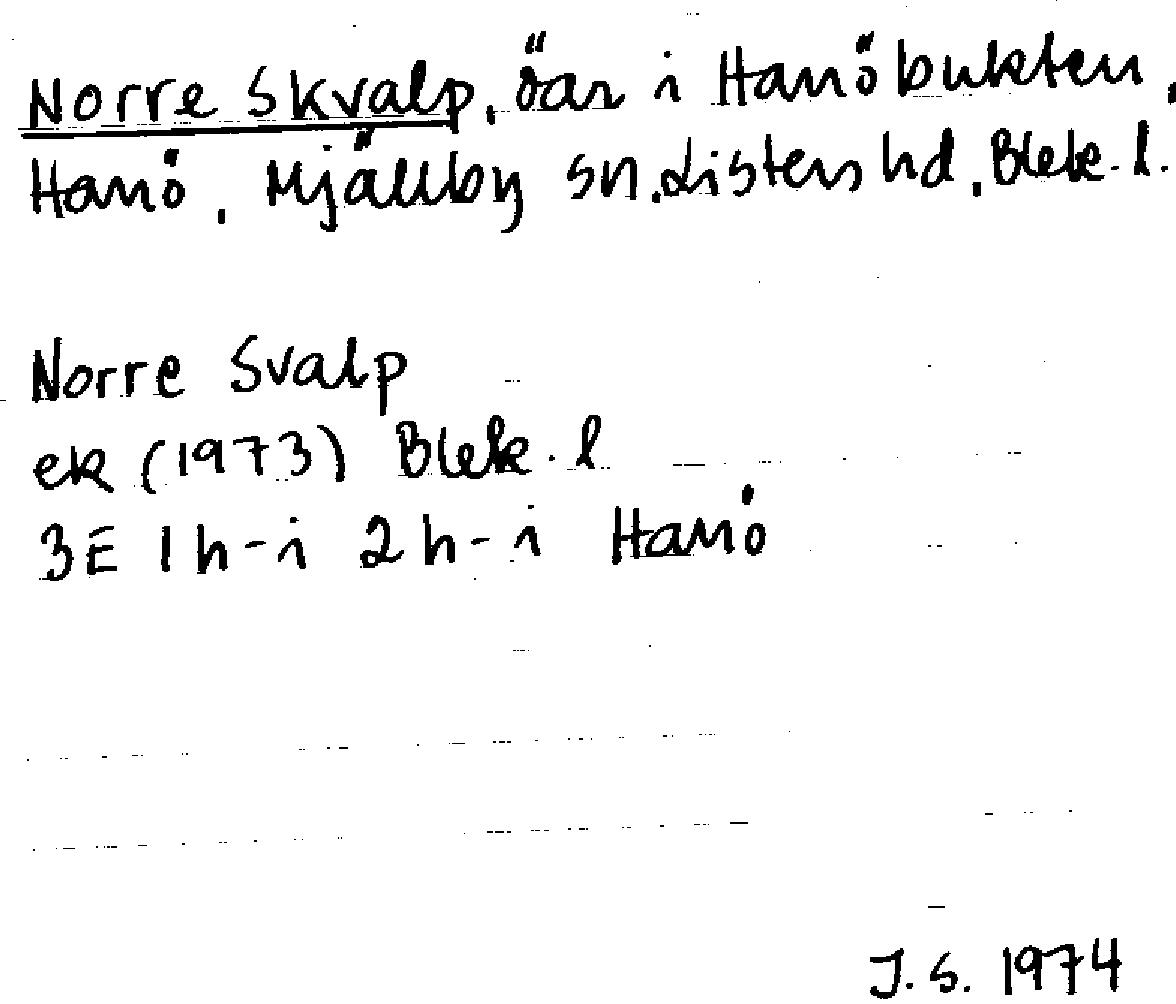 Norre Skvalp, öar i Hanöbukten,
Hanö, Mjällby sn, Listers hd, Blek. l.
Norre Svalp
ek (1973) Blek. l
3E 1h-i 2h-i Hanö
J.S. 1974